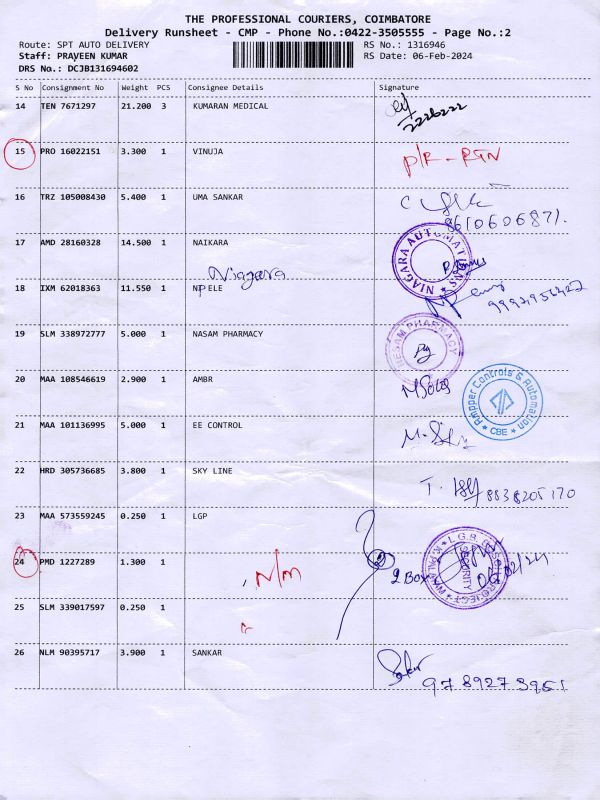 THE PROFESSIONAL COURIERS, COIMBATORE
Delivery Runsheet - CMP - Phone No.:0422-3505555 - Page No.:2
Route: SPT AUTO DELIVERY
RS No.: 1316946
Staff: PRAVEEN KUMAR
RS Date: 06-Feb-2024
DRS No.: DCJB131694602
S No Consignment No Weight PCS Consignee Details Signature
14 TEN 7671297 21.200 3 KUMARAN MEDICAL
15 PRO 16022151 3.300 1 VINUJA P/R - RTN
16 TRZ 105008430 5.400 1 UMA SANKAR
17 AMD 28160328 14.500 1 NAIKARA
Niagara
NIAGARA AUTOMATIONS
18 IXM 62018363 11.550 1 NP ELE
19 SLM 338972777 5.000 1 NASAM PHARMACY
NESAM PHARMACY
20 MAA 108546619 2.900 1 AMBR
Ampper Controls & Automation
CBE
21 MAA 101136995 5.000 1 EE CONTROL
22 HRD 305736685 3.800 1 SKY LINE
8838205170
23 MAA 573559245 0.250 1 LGP
24 PMD 1227289 1.300 1 N/M
2 Box
SECURITY
25 SLM 339017597 0.250 1
26 NLM 90395717 3.900 1 SANKAR
9789273951